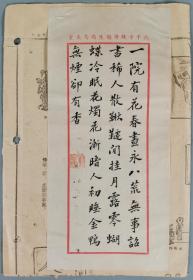 一院有花春晝永八荒無事詔
書稀人散鞦韆閒挂月露零蝴
蝶冷眠花燭花漸暗人初睡金鴨
無煙卻有香